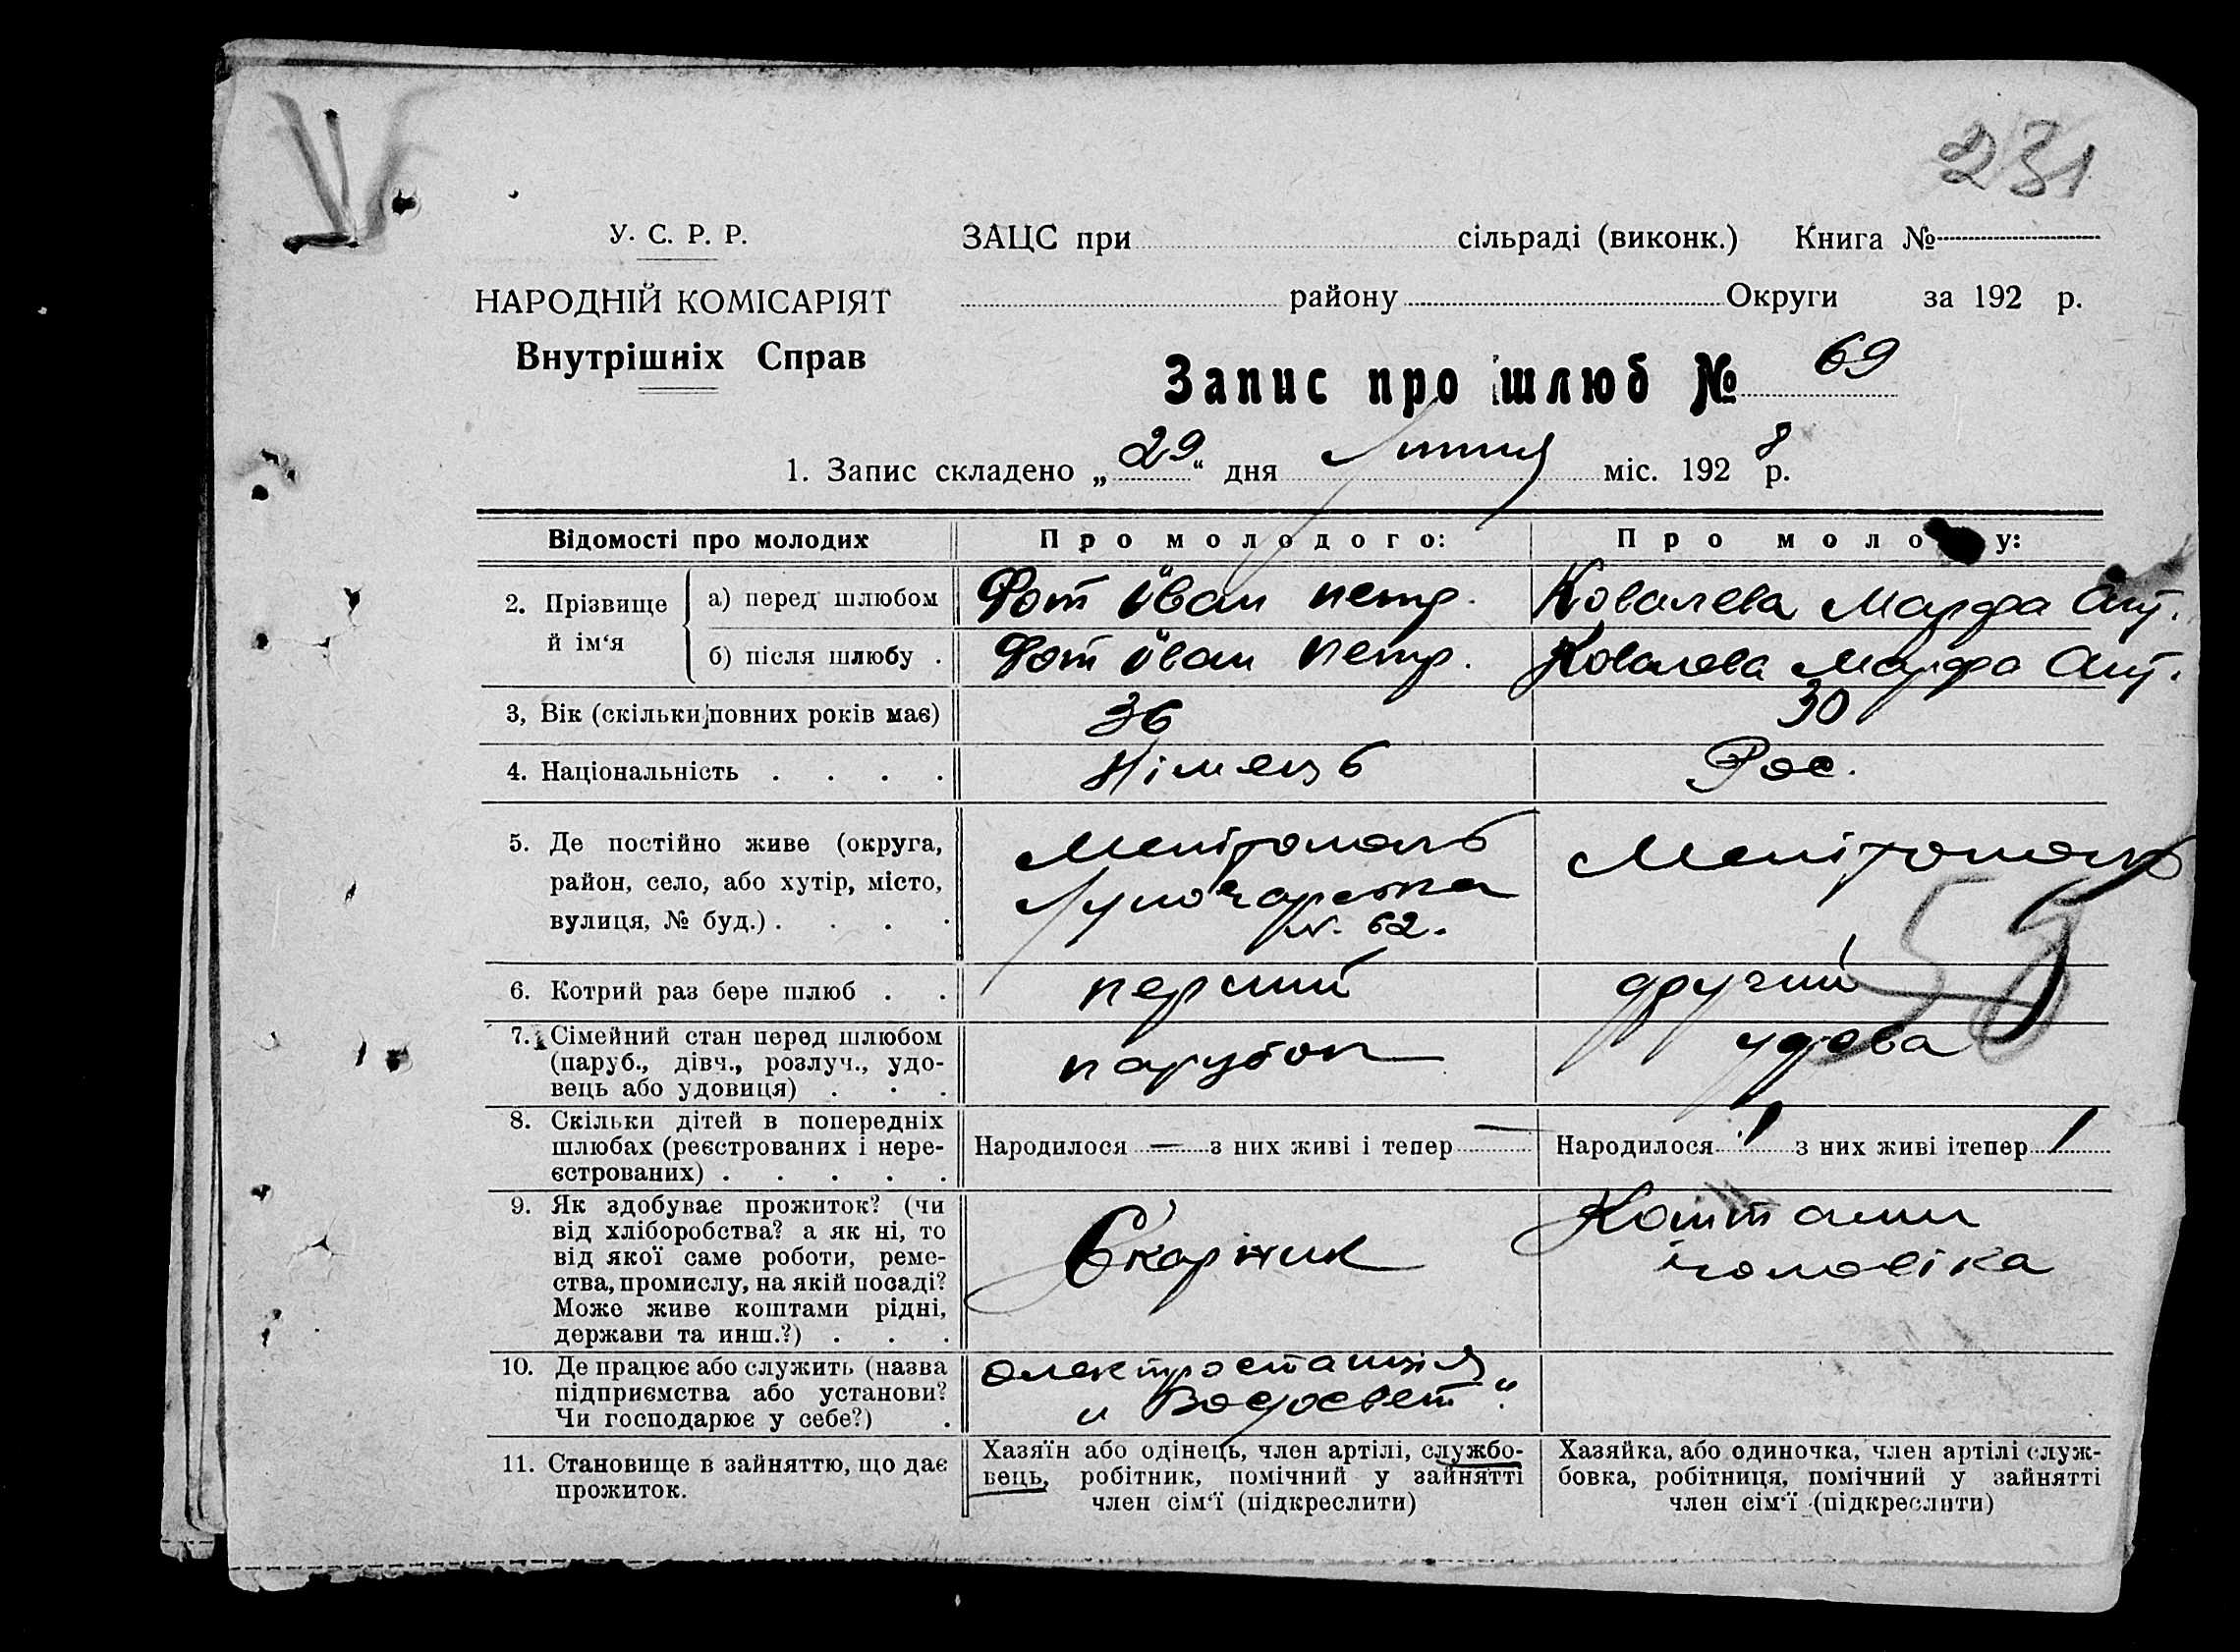 231
У. С. Р. Р.
НАРОДНІЙ КОМІСАРІЯТ
Внутрішніх Справ
ЗАЦС при сільраді (виконк.) Книга №
району Округи за 192 р.
Запис про шлюб № 69
1. Запис складено „29“ дня Липня міс. 1928 р.
Відомості про молодих
Про молодого:
Про моло у:
2. Прізвище й ім‘я
а) перед шлюбом
Фот Іван Петр.
Ковалева Марфа Ант.
б) після шлюбу .
Фот Іван Петр.
Ковалева Марфа Ант.
3, Вік (скільки повних років має)
36
30
4. Національність . . . .
Німець
Рос.
5. Де постійно живе (округа,
район, село, або хутір, місто,
вулиця, № буд.) . . . .
Мелітополь
Луночарська
N. 62.
Мелітополь
58
6. Котрий раз бере шлюб . .
перший
другий
7. Сімейний стан перед шлюбом
(паруб., дівч., розлуч., удо-
вець або удовиця) . . .
парубок
удова
8. Скільки дітей в попередніх
шлюбах (реєстрованих і нере-
єстрованих) . . . . .
Народилося — з них живі і тепер —
Народилося 1 з них живі ітепер 1
9. Як здобуває прожиток? (чи
від хліборобства? а як ні, то
від якої саме роботи, реме-
ства, промислу, на якій посаді?
Може живе коштами рідні,
держави та инш.?) . . .
Коштами
чоловіка
10. Де працює або служить (назва
підприємства або установи?
Чи господарює у себе?) .
електростанція
„Водосвет“.
11. Становище в зайняттю, що дає
прожиток.
Хазяїн або одінець, член артілі, службо-
вець, робітник, помічний у зайнятті
член сім‘ї (підкреслити)
Хазяйка, або одиночка, член артілі служ-
бовка, робітниця, помічний у зайнятті
член сім‘ї (підкреслити)